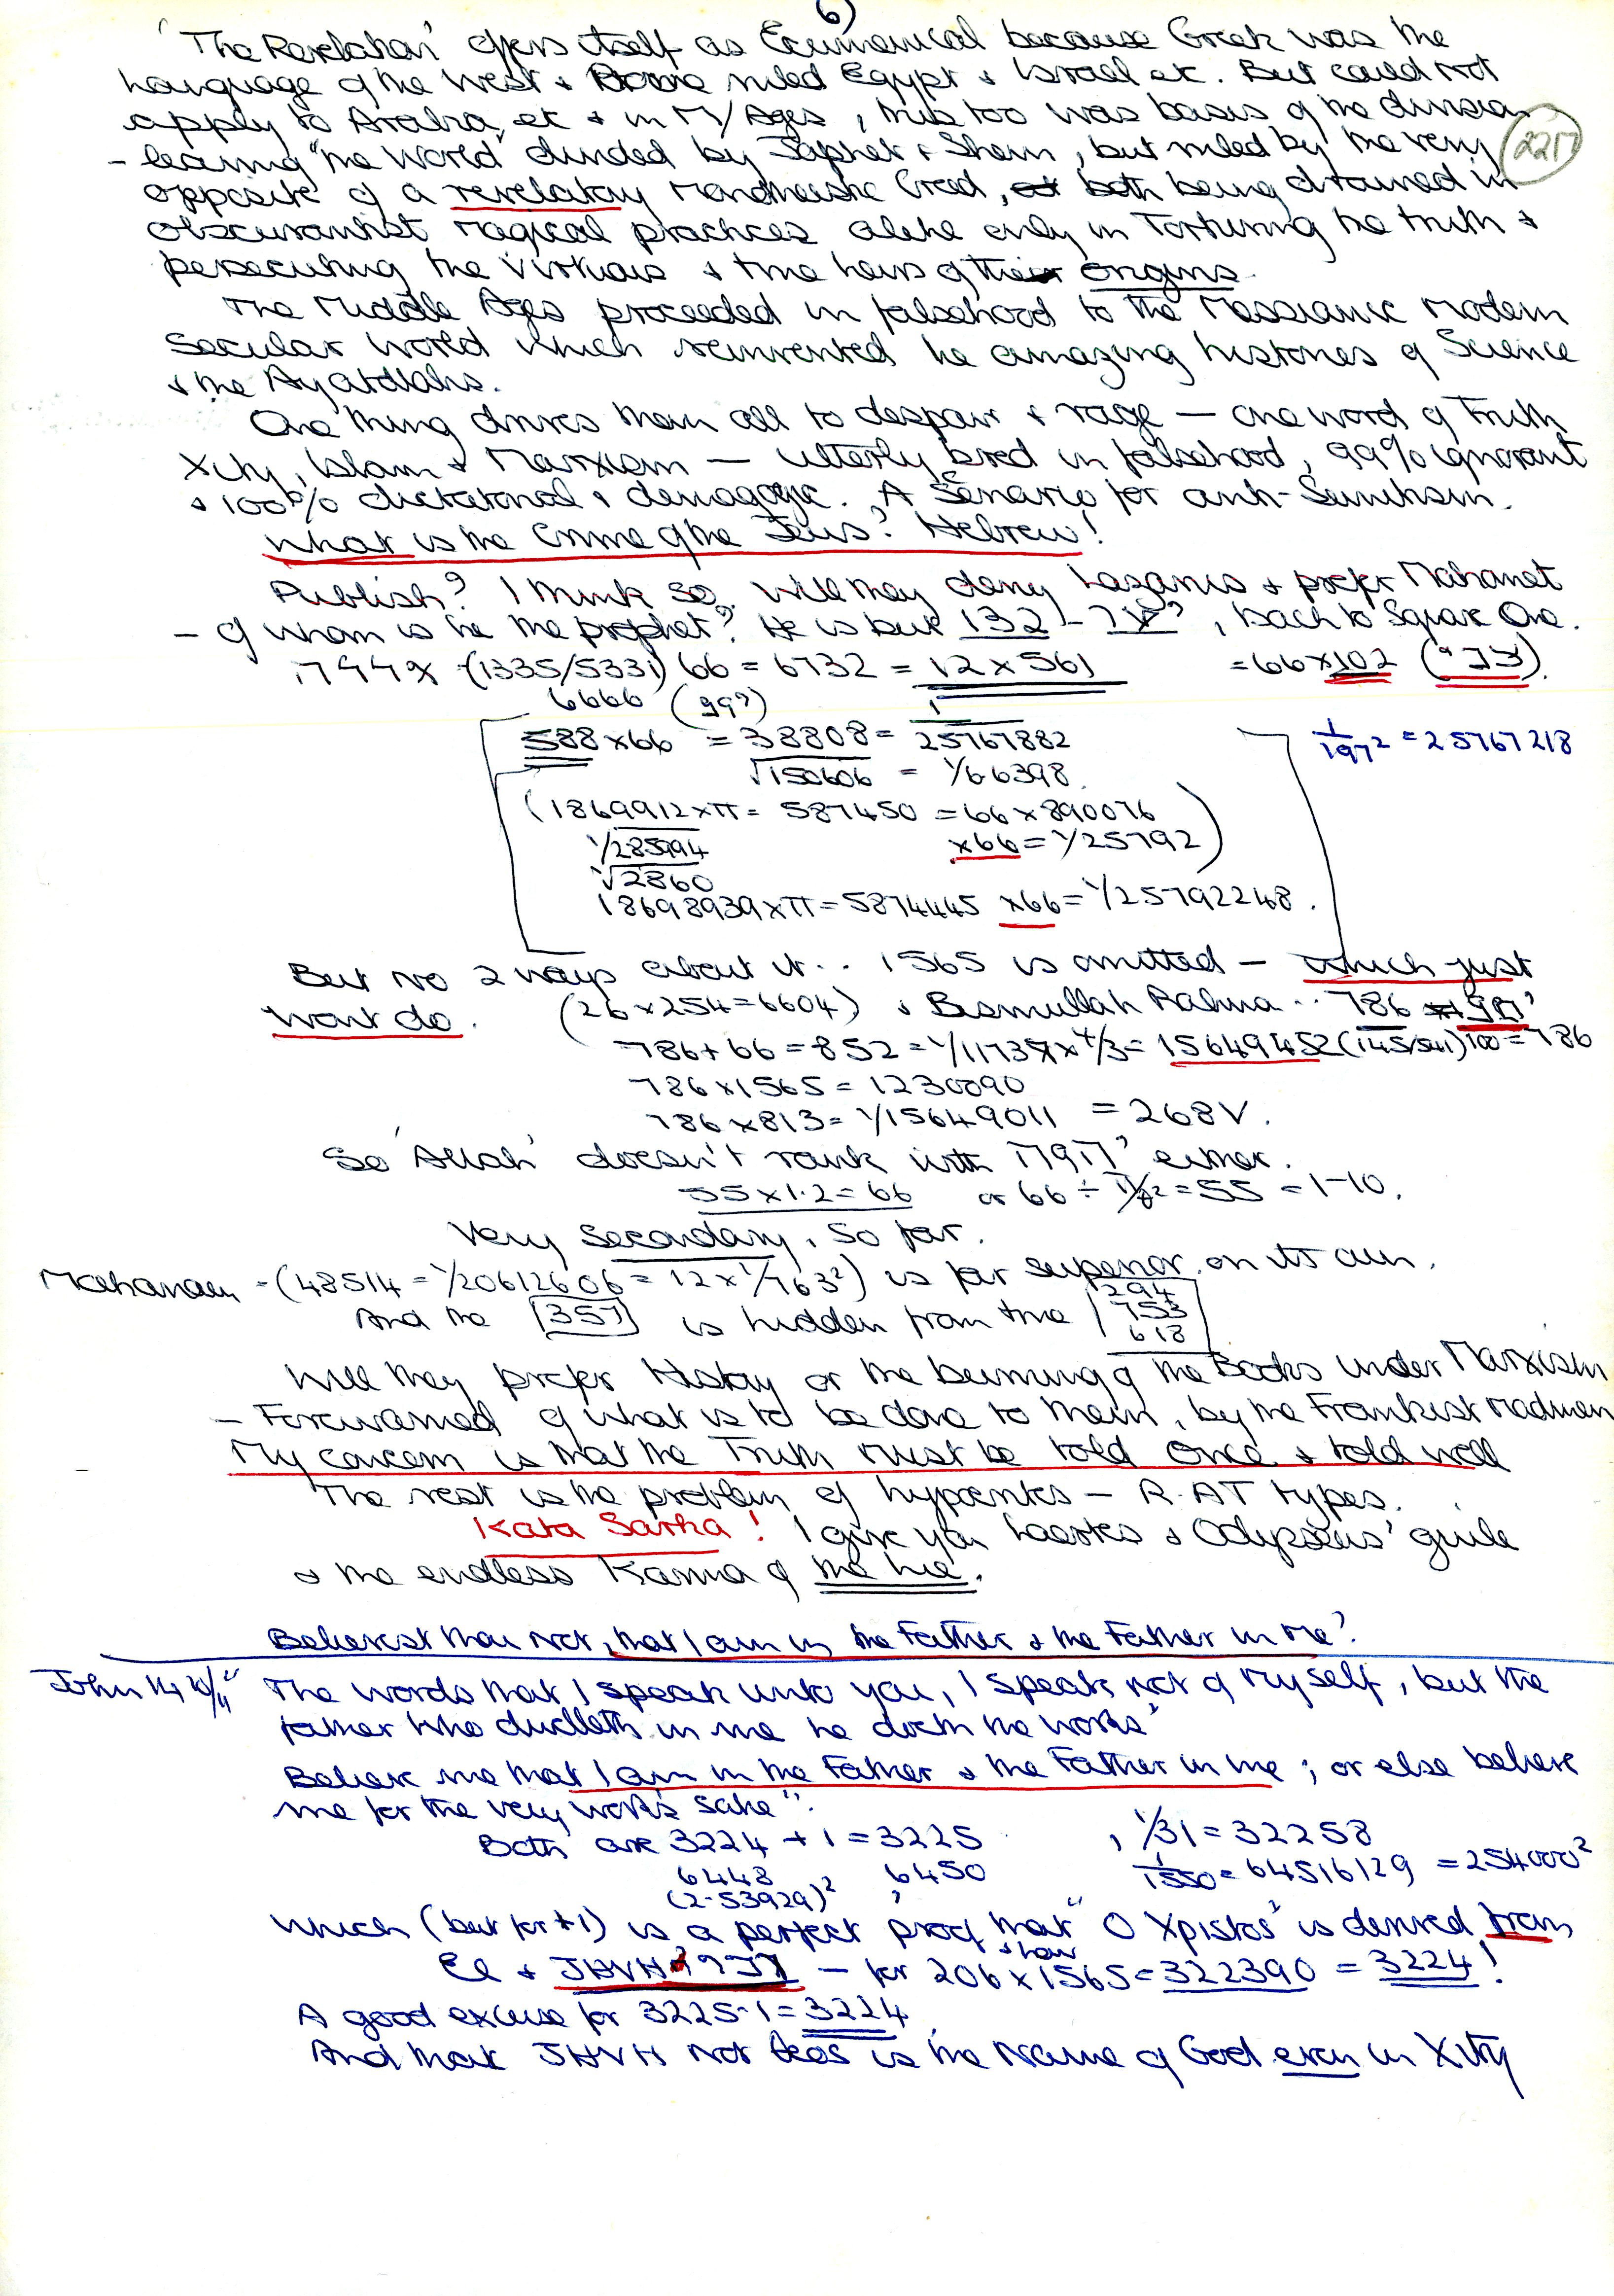 6)
'The Revelation' offers itself as Ecumenical because Greek was the
language of the West & Rome ruled Egypt & Israel etc. But could not
apply to Arabia, etc & in M/Ages, this too was basis of the division
2217
- leaving "the World" divided by Japhet & Shem, but ruled by the very
opposite of a revelatory Monotheistic Creed, both being drowned in
obscurantist magical practices alike only in Torturing the truth &
persecuting the virtuous & true heirs of their origins.
The Middle Ages proceeded in falsehood to the Messianic Modern
Secular World which reinvented the amazing histories of Science
& the Ayatollahs.
One thing drives them all to despair & rage — one word of Truth
Xity, Islam & Marxism — utterly bred in falsehood, 99% ignorant
& 100% dictatorial & demagogic. A Senario for anti-Semitism.
What is the Crime of the Jews? Hebrew!
Publish? I think so. Will they deny Lazarus & prefer Mahomet
- of whom is he the prophet? He is but 132 - , back to Square One.
(1335/5331) 66 = 6732 = 12 x 561 = 66 x 102
6666 (99?)
588 x 66 = 38808 = 1/25767882
1/197² = 25767218
√150606 = 1/66398
(1869912 x π = 587450 = 66 x 890076
1/285994 x66 = 1/25792)
√2860
18698939 x π = 5874445 x66 = 1/25792248.
But no 2 ways about it.. 1565 is omitted — which just
wont do. (26 x 254 = 6604) & Bismullah Rahma.. 786
786 + 66 = 852 = 1/11737 x 4/3 = 15649452 (145/541) 100 = 786
786 x 1565 = 1230090
786 x 813 = 1/15649011 = 268V.
So 'Allah' doesn't rank with either.
55 x 1.2 = 66 or 66 ÷ = 55 = 1-10.
Very Secondary, so far.
- (48514 = 1/20612606 = 12 x 1/763²) is far superior on its own.
294
And the 357 is hidden from true 753
618
Will they prefer History or the burning of the Books under Marxism
- Forewarned of what is to be done to them, by the Frankist madmen
My concern is that the Truth must be told Once & told well
The rest is the problem of hypocrites — R.AT types.
Kata Sarka! I give you Laertes & Odysseus' guile
& the endless Karma of the lie.
Believest thou not, that I am in the Father & the Father in me?
John 14 10/11 "The words that I speak unto you, I speak not of myself, but the
father who dwelleth in me he doeth the works'
Believe me that I am in the Father & the Father in me; or else believe
me for the very works sake".
Both are 3224 + 1 = 3225 , 1/31 = 32258
6448 6450 1/1550 = 64516129 = 254000²
(2.53929)²
Which (but for +1) is a perfect proof that "O Xpistos" is derived from
El & JHVH — for 206 x 1565 = 322390 = 3224!
A good excuse for 3225-1 = 3224
And that JHVH not theos is the Name of God even in Xity